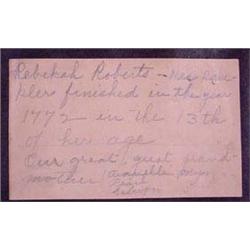 Rebekah Roberts — Her Sam-
plers finished in the year
1772 in the 13th
of her age
Our great, great grand-
mother